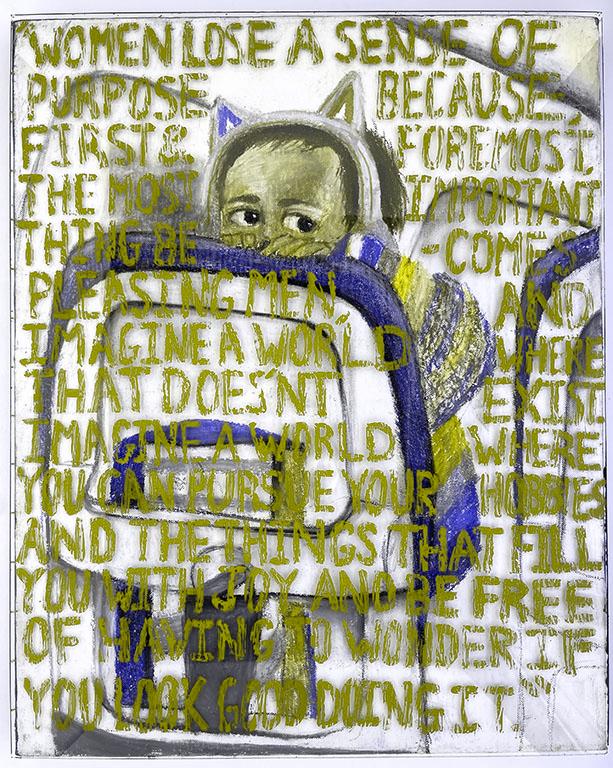 "WOMEN LOSE A SENSE OF
PURPOSE BECAUSE,
FIRST & FOREMOST,
THE MOST IMPORTANT
THING BE-COMES
PLEASING MEN, AND
IMAGINE A WORLD WHERE
THAT DOES'NT EXIST
IMAGINE A WORLD WHERE
YOU CAN PURSUE YOUR HOBBIES
AND THE THINGS THAT FILL
YOU WITH JOY AND BE FREE
OF HAVING TO WONDER IF
YOU LOOK GOOD DOING IT"